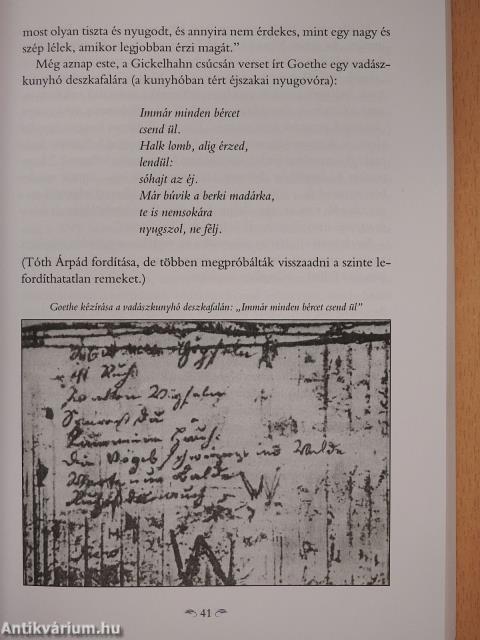 most olyan tiszta és nyugodt, és annyira nem érdekes, mint egy nagy és
szép lélek, amikor legjobban érzi magát.”
Még aznap este, a Gickelhahn csúcsán verset írt Goethe egy vadász-
kunyhó deszkafalára (a kunyhóban tért éjszakai nyugovóra):
Immár minden bércet
csend ül.
Halk lomb, alig érzed,
lendül:
sóhajt az éj.
Már búvik a berki madárka,
te is nemsokára
nyugszol, ne félj.
(Tóth Árpád fordítása, de többen megpróbálták visszaadni a szinte le-
fordíthatatlan remeket.)
Goethe kézírása a vadászkunyhó deszkafalán: „Immár minden bércet csend ül”
allen
ist Ruh
In allen
du
Hauch.
Die Vögel schweigen im Walde
nur balde
41
Antikvárium.hu